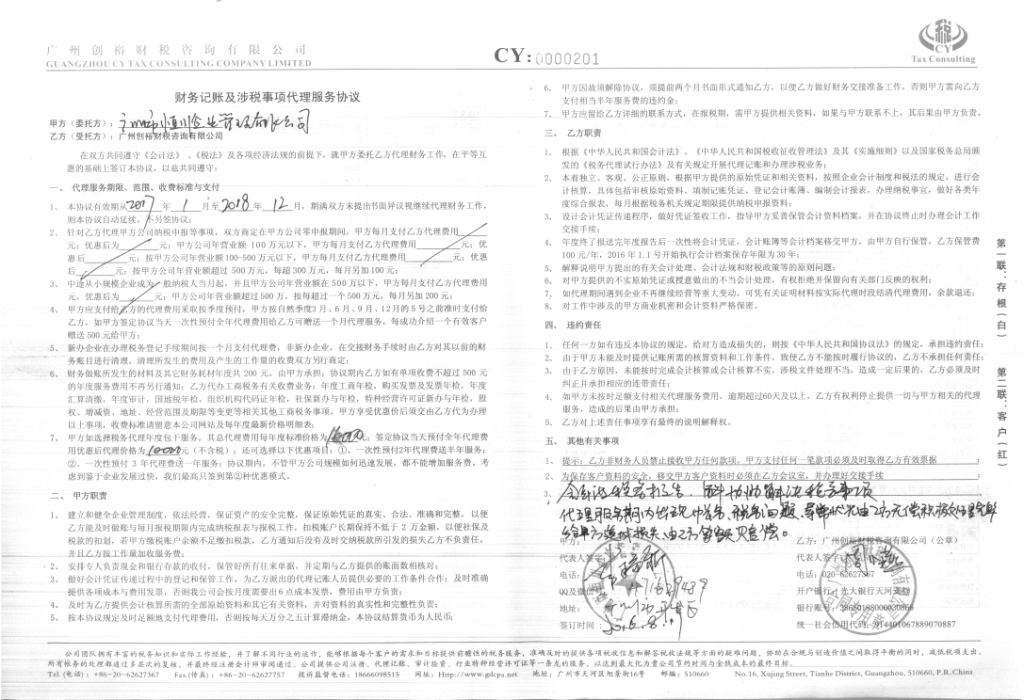 广州创裕财税咨询有限公司
GUANGZHOU CY TAX CONSULTING COMPANY LIMITED
CY:0000201
CY
Tax Consulting
财务记账及涉税事项代理服务协议
甲方（委托方）：
乙方（受托方）：广州创裕财税咨询有限公司
在双方共同遵守《会计法》、《税法》及各项经济法规的前提下，就甲方委托乙方代理财务工作，在平等互
惠的基础上签订本协议，以兹共同遵守：
一、 代理服务期限、范围、收费标准与支付
1、 本协议有效期从2017年 1 月至2018年 12 月，期满双方未提出书面异议视继续代理财务工作，
则本协议自动延续，不另签协议；
2、 针对乙方代理甲方公司纳税申报等事项，双方商定在甲方公司零申报期间，每月支付乙方代理费用
元；优惠后为 元；甲方公司年营业额 100 万元以下，甲方每月支付乙方代理费用 元；优
惠后 元；按甲方公司年营业额100-500 万元以下，甲方每月支付乙方代理费用 元；优惠
后 元；按甲方公司年营业额超过 500 万元，每超 300 万元，每月另加 100 元；
3、 中途从小规模企业成为一般纳税人当月起，并且甲方公司年营业额在 500 万以下，甲方每月支付乙方代理费用
元，优惠后为 元；甲方公司年营业额超过 500 万，按每超过一个 500 万元，每月另加 200 元；
4、 甲方应支付给乙方的代理费用采取按季度预付，甲方按自然季度3月、6月、9月、12月的5号之前准时支付给
乙方，如甲方签定协议当天一次性预付全年代理费用给乙方可赠送一个月代理服务，每成功介绍一个有效客户
赠送 500 元给甲方；
5、 新办企业在办理税务登记手续期间按一个月支付代理费，非新办企业，在交接财务手续时由乙方对其以前的财
务账目进行清理，清理所发生的费用及产生的工作量的收费双方另行商定；
6、 财务做账所发生的材料及其它财务耗材年度共 200 元，由甲方承担；协议期内乙方如有单项收费不超过 500 元
的年度服务费用不再另行通知；乙方代办工商税务有关收费业务；年度工商年检，购买发票及发票年检，年度
汇算清缴，年度审计，国地税年检，组织机构代码证年检，社保新办与年检，特种经营许可证新办与年检，股
权、增减资、地址、经营范围及期限等变更等相关其他工商税务事项，甲方享受优惠价后须交由乙方代为办理
以上事项，收费标准请留意本公司网站及每年度最新价格明细表；
7、 甲方如选择税务代理年度包干服务，其总代理费用每年度标准价格为 元；签定协议当天预付全年代理费
用优惠后代理价格为10000元（不含税）；还可选择以下优惠项目：①、一次性预付2年代理费送半年服务；
②、一次性预付 3 年代理费送一年服务；协议期内，不管甲方公司规模如何迅速发展，都不能增加服务费，考
虑到鉴于企业发展过快，我们最高只签到第②种优惠模式。
二、 甲方职责
1、 建立和健全企业管理制度，依法经营，保证资产的安全完整，保证原始凭证的真实、合法、准确和完整，以便
乙方能及时做账与每月报税期限内完成纳税报表与报税工作，扣税账户长期保持不低于 2 万金额，以便社保及
税款的划扣，若甲方缴税账户余额不足缴扣税款，乙方通知后没有及时交纳税款所引发的损失乙方不负责任，
并且乙方按工作量加收服务费；
2、 安排专人负责现金和银行存款的收付，保管好所有往来单据，并定期与乙方提供的账面数相核对；
3、 做好会计凭证传递过程中的登记和保管工作，为乙方派出的代理记账人员提供必要的工作条件合作；及时准确
提供各项成本与费用发票，否则我公司会按月度需要出 6 点成本发票，费用由甲方负责；
4、 及时为乙方提供会计核算所需的全部原始资料和其它有关资料，并对资料的真实性和完整性负责；
5、 按本协议规定及时足额地支付代理费用，否则按每天万分之五计算滞纳金，本协议结算货币为人民币；
6、 甲方因故须解除协议，须提前两个月书面形式通知乙方，以便乙方做好财务交接准备工作，否则甲方需向乙方
支付相当半年服务费的违约金；
7、 甲方应留给乙方详细的联系方式，在报税期，需甲方提供相关资料，如果与甲方联系不上，其后果由甲方负责。
三、 乙方职责
1、 根据《中华人民共和国会计法》、《中华人民共和国税收征收管理法》及其《实施细则》以及国家税务总局颁
发的《税务代理试行办法》及有关规定开展代理记账和办理涉税业务；
2、 本着独立、客观、公正原则，根据甲方提供的原始凭证和相关资料，按照企业会计制度和税法的规定，进行会
计核算，具体包括审核原始资料、填制记账凭证、登记会计账簿、编制会计报表，办理纳税事宜，做好各类年
度综合报表，每月根据税务机关规定期限提供纳税申报资料；
3、 设计会计凭证传递程序，做好凭证签收工作，指导甲方妥善保管会计资料档案，并在协议终止时办理会计工作
交接手续；
4、 年度终了报送完年度报告后一次性将会计凭证，会计账簿等会计档案移交甲方，由甲方自行保管，乙方保管费
100 元/年，2016 年 1.1 号开始执行会计档案保存年限为 30 年；
5、 解释说明甲方提出的有关会计处理、会计法规和财税政策等的原则问题；
6、 对甲方提供的不实原始凭证或授意做出的不当会计处理，有权拒绝并保留向有关部门反映的权利；
7、 如代理期间遇到企业不再继续经营等重大变动，可凭有关证明材料按实际代理时段结清代理费用，余款退还；
8、 对工作中涉及的甲方商业机密和会计资料严格保密。
四、 违约责任
1、 任何一方如有违反本协议的规定，给对方造成损失的，则按《中华人民共和国协议法》的规定，承担违约责任；
2、 由于甲方未能及时提供记账所需的核算资料和工作条件，致使乙方不能按时履行协议的，乙方不承担任何责任；
3、 由于乙方原因，未能按时完成会计核算或会计核算不实，涉税文件处理不当，造成一定后果的，乙方必须及时
纠正并承担相应的连带责任；
4、 如甲方未按时足额支付相关代理服务费用，逾期超过60天及以上，乙方有权利停止提供一切与甲方相关的代理
服务，造成的后果由甲方承担；
5、 乙方对上述责任事项享有最终的说明解释权。
五、 其他有关事项
1、 提示：乙方非财务人员禁止接收甲方任何款项，甲方支付任何一笔款项必须及时取得乙方有效票据 ；
2、 为保存客户资料的安全，移交甲方客户资料时必须在乙方会议室，并办理好交接手续 ；
3、
甲方：
代表人签
电话：
QQ及微信
地址：
签订时间：2016.8.19
乙方：广州创裕财税咨询有限公司（公章）
代表人签字
电话：020-62627367
开户银行：光大银行天河支行
银行账号：
统一社会信用代码：914401067889070887
第一联：存根（白） 第二联：客户（红）
公司团队拥有丰富的税务知识和实际工作经验，并了解不同行业的运作，能够根据每个客户的需求和目标提供前瞻性的税务服务，准确及时的提供各项税收信息和解答税收法规等方面的疑难问题，协助在合规与创造价值之间取得平衡的同时，减低税项支出。
所有账务的处理都通过多层次的复核，并最终经注册会计师审阅通过。公司提供公司注册、代理记账、审计验资、行业特种经营许可证等一条龙的服务，以达到最大化为贵公司节约时间与金钱成本的最终目标。
Tel（电话）：+86-20-62627367 Fax（传真）：+86-20-62627757 投诉监督电话：18666098515 网址：Http://www.gdcpa.net 地址：广州市天河区旭景街16号 邮编：510660 No.16, Xujing Street, Tianhe District, Guangzhou, 510660, P.R. China